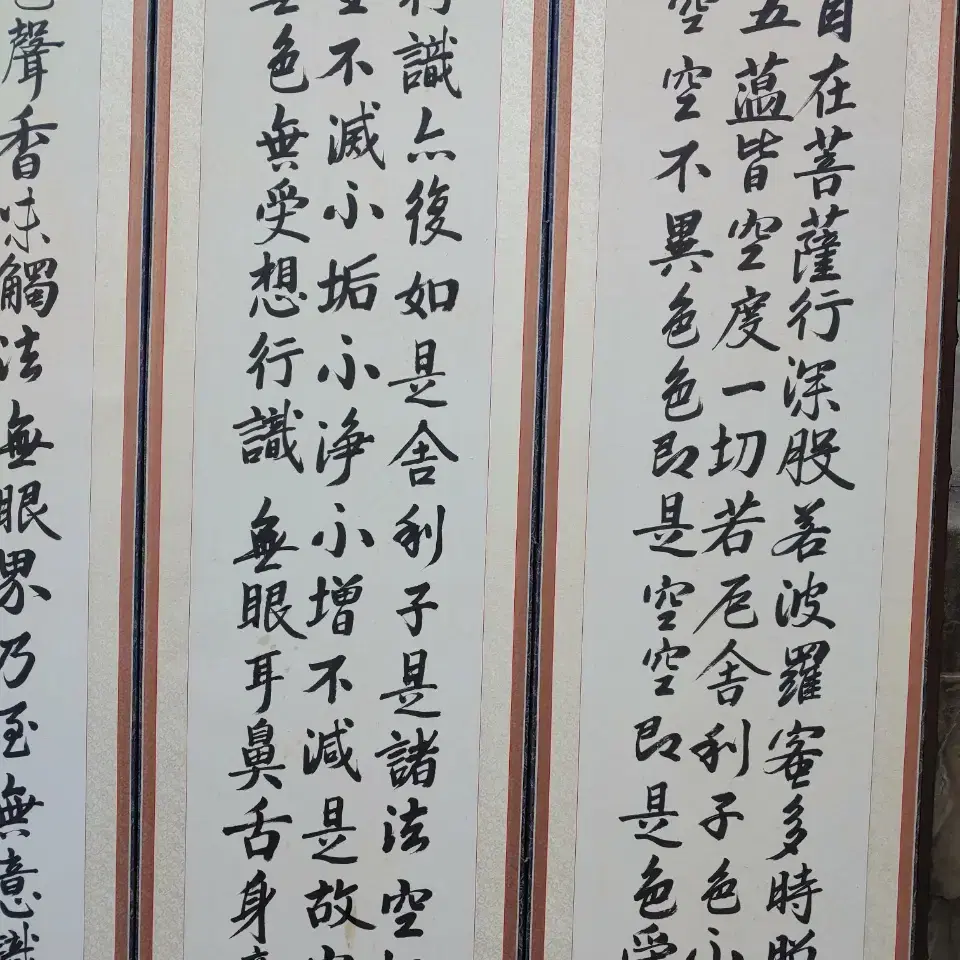 自在菩薩行深般若波羅蜜多時
五薀皆空度一切苦厄舍利子色不
空空不異色色即是空空即是色受
行識亦復如是舍利子是諸法空
不滅不垢不淨不增不減是故
無色無受想行識無眼耳鼻舌身
色聲香味觸法無眼界乃至無意識